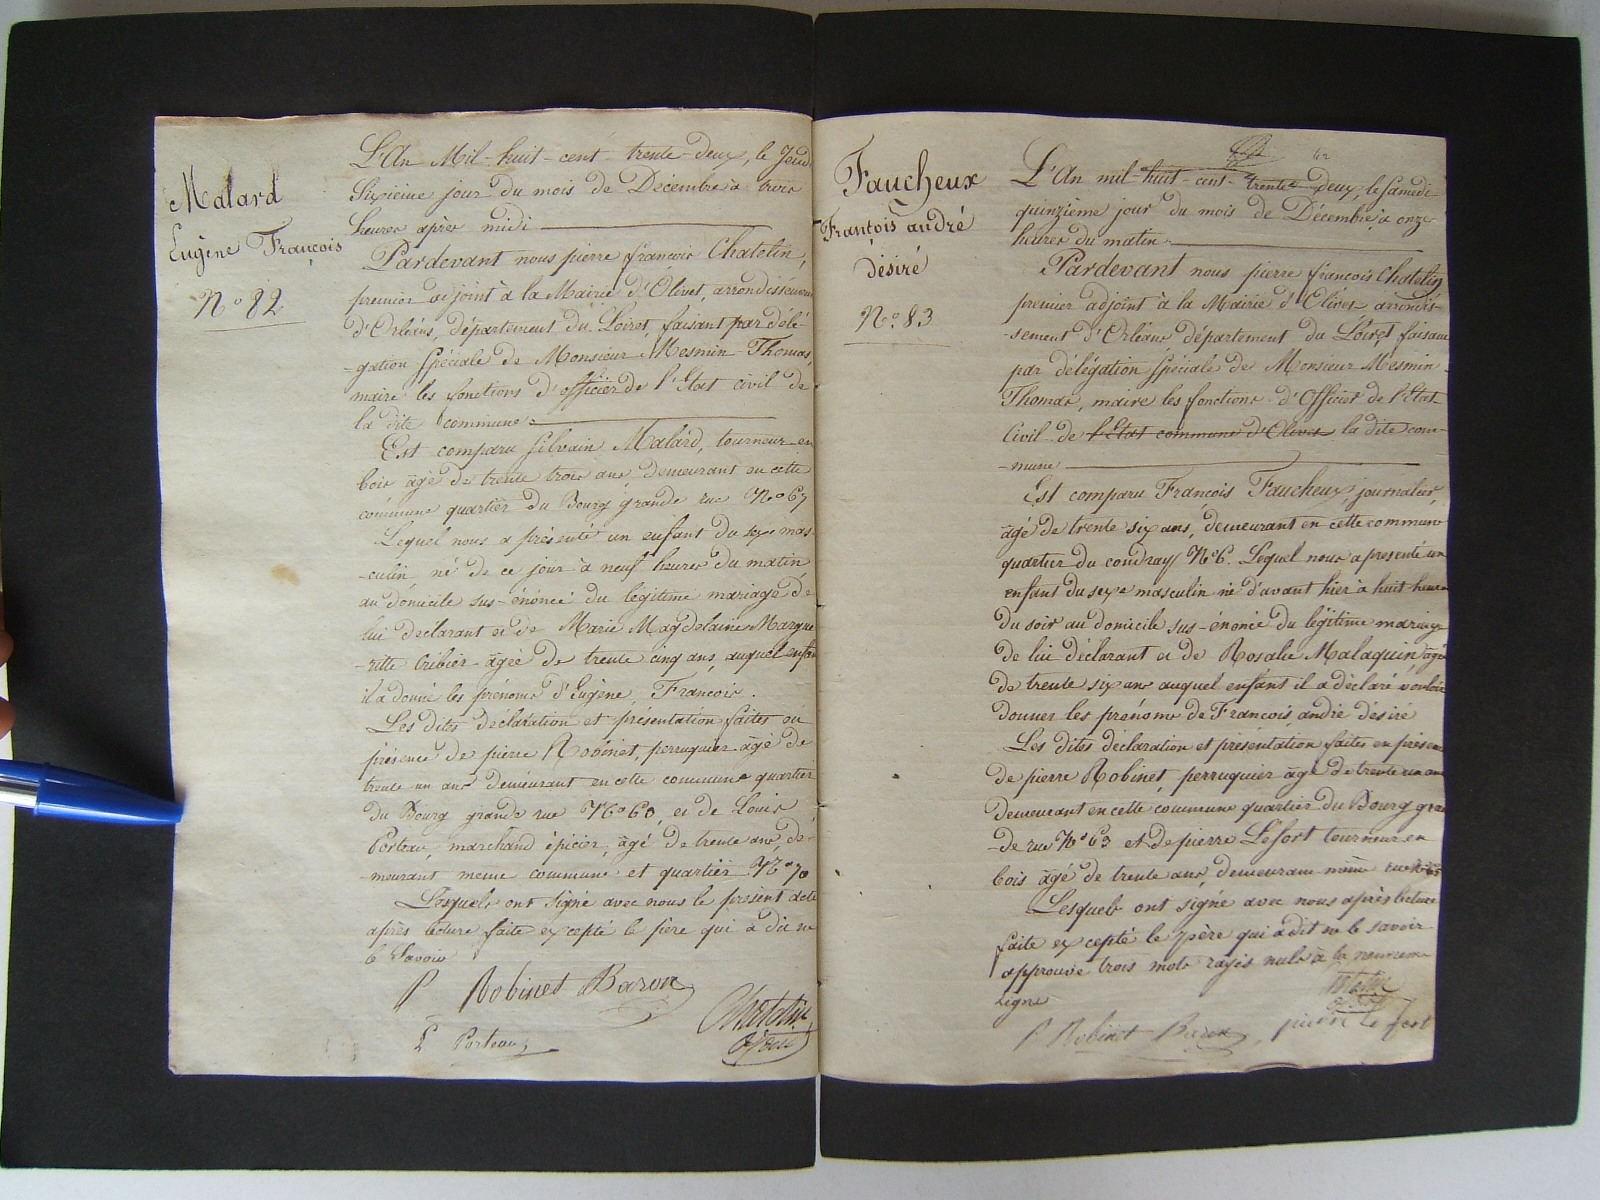 Malard
Eugène François
N° 82
L'An Mil-huit-cent-trente-deux, le Jeudi
Sixieme jour du mois de Décembre à trois
heures après midi
Pardevant nous pierre françois Chatelin,
premier adjoint à la Mairie d'Olivet, arrondissement
d'Orléans, département du Loiret, faisant par délé-
-gation spéciale de Monsieur Mesmin Thomas,
maire les fonctions d'officier de l'Etat civil de
la dite commune
Est comparu Silvain Malard, tourneur en
bois âgé de trente trois ans, demeurant en cette
commune quartier du Bourg grande rue N° 67
Lequel nous a présenté un enfant du sexe mas-
-culin, né de ce jour à neuf heures du matin
au domicile sus-énoncé du légitime mariage de
lui declarant et de Marie Magdelaine Margue
-ritte Cribier âgée de trente cinq ans, auquel enfant
il a donné les prénoms d'Eugène, François.
Les dites déclaration et présentation faites en
présence de pierre Robinet, perruquier âgé de
trente un ans demeurant en cette commune quartier
du Bourg grande rue N° 60, et de Louis
Porteau, marchand épicier, âgé de trente ans, de-
-meurant meme commune et quartier N° 70
Lesquels ont signé avec nous le présent acte
après lecture faite excepté le père qui a dit ne
le Savoir
P Robinet Baron
Chatelin
adjoint
L Porteau
Faucheux
François andré
désiré
N° 83
62
L'An mil-huit-cent-trente-deux, le Samedi
quinzième jour du mois de Décembre, à onze
heures du matin
Pardevant nous pierre françois Chatelin
premier adjoint à la Mairie d'Olivet arrondis-
-sement d'Orléans, département du Loiret faisant
par délégation spéciale de Monsieur Mesmin
Thomas, maire les fonctions d'Officier de l'Etat
Civil de l'Etat commune d'Olivet la dite com-
-mune
Est comparu François Faucheux, journalier,
âgé de trente six ans, demeurant en cette commune
quartier du coudray N° 6. Lequel nous a presenté un
enfant du sexe masculin né d'avant hier à huit heures
du soir au domicile sus-énoncé du légitime mariage
de lui déclarant et de Rosalie Malaquin, âgée
de trente six ans auquel enfant il a déclaré vouloir
donner les prénoms de François andré désiré
Les dites déclaration et présentation faites en présence
de pierre Robinet, perruquier âgé de trente un ans
demeurant en cette commune quartier du Bourg gran
-de rue N° 63 et de pierre Lefort tourneur en
bois âgé de trente ans, demeurant même rue N° 65
Lesquels ont signé avec nous après lecture
faite excepté le père qui a dit ne le savoir
approuvé trois mots rayés nuls à la neuvieme
Ligne
P Robinet Baron pierre Lefort